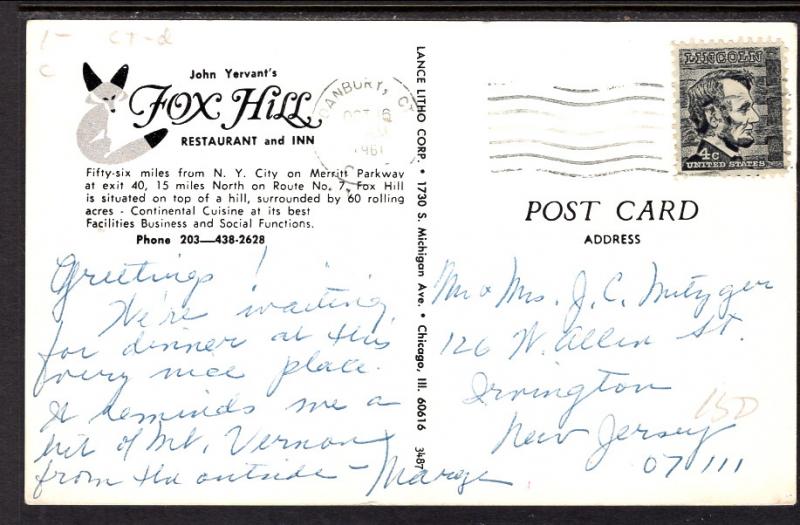 1- CT-d
C
John Yervant's
Fox Hill
RESTAURANT and INN
Fifty-six miles from N. Y. City on Merritt Parkway
at exit 40, 15 miles North on Route No. 7. Fox Hill
is situated on top of a hill, surrounded by 60 rolling
acres - Continental Cuisine at its best
Facilities Business and Social Functions.
Phone 203—438-2628
Greetings!
We're waiting
for dinner at this
very nice place.
It reminds me a
bit of Mt. Vernon
from the outside - Marge
LANCE LITHO CORP. • 1730 S. Michigan Ave. • Chicago, Ill. 60616 3487
DANBURY, CT
OCT 6
LINCOLN
4c
UNITED STATES
POST CARD
ADDRESS
Mr & Mrs. J. C. Mitzger
126 W. Allen St.
Irvington
New Jersey
07111
150